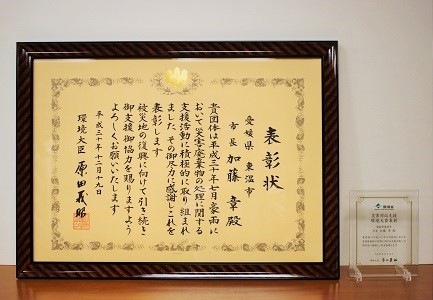 表彰状
愛媛県 東温市
市長 加藤 章殿
貴団体は平成三十年七月豪雨に
おいて災害廃棄物の処理に関する
支援活動に積極的に取り組まれ
ました その御尽力に感謝しこれを
表彰します
被災地の復興に向けて引き続き
御支援 御協力を賜りますよう
よろしくお願いいたします
平成三十年十二月十九日
環境大臣 原田義昭
環境省
災害対応支援
環境大臣表彰